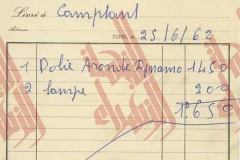 Livré à Comptant
Adresse
TUNIS, le 25/6/62
1 Polie Aronde Dynamo 1450
2 lampe 200
1650